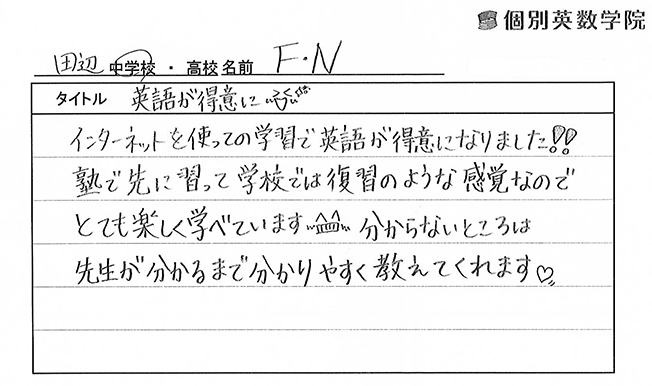 個別英数学院
田辺 中学校・高校 名前 F・N
タイトル 英語が得意に
インターネットを使っての学習で英語が得意になりました!!
塾で先に習って学校では復習のような感覚なので
とても楽しく学べています 分からないところは
先生が分かるまで分かりやすく教えてくれます♡